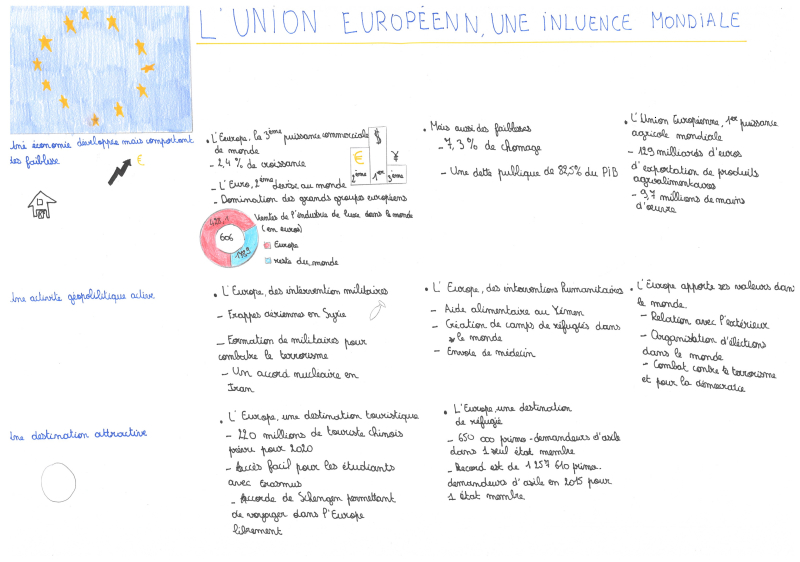 L'UNION EUROPÉENN, UNE INLUENCE MONDIALE
Une économie développés mais comportant
des faiblsse
€
• L'Europe, la 3ème puissance commerciale
de monde
- 2,4 % de croissance
- L'Euro, 2ème devise au monde
- Domination des grands groupes européens
$
€
¥
2ème 1er 3ème
Ventes de l'industrie de luxe dans le monde
(en euros)
428,1
606
Europe
reste du monde
• Mais aussi des faiblesses
- 7,3 % de chomage
- Une dette publique de 82,5% du PIB
• L'Union Européenne, 1er puissance
agricole mondiale
- 129 milliards d'euros
d'exportation de produits
agroalimentaires
- 9,7 millions de mains
d'œuvre
Une activité géopolilitique active
• L'Europe, des intervention militaires
- Frappes aériennes en Syrie
- Formation de militaires pour
combatre le terrorisme
- Un accord nucleaire en
Iran
• L'Europe, des interventions humanitaires
- Aide alimentaire au Yémen
- Création de camps de réfugiés dans
le monde
- Envoie de médecin
• L'Europe apporte ses valeurs dans
le monde
- Relation avec l'extérieur
- Organisation d'éléctions
dans le monde
- Combat contre le terrorisme
et pour la démocratie
Une destination attractive
• L'Europe, une destination touristique
- 220 millions de touriste chinois
prévu pour 2020
- Accès facil pour les étudiants
avec Erasmus
- Accorde de Schengen permettant
de voyager dans l'Europe
librement
• L'Europe, une destination
de réfugié
- 650 000 primo-demandeurs d'asile
dans 1 seul état membre
- Record est de 1 257 610 primo-
demandeurs d'asile en 2015 pour
1 état membre